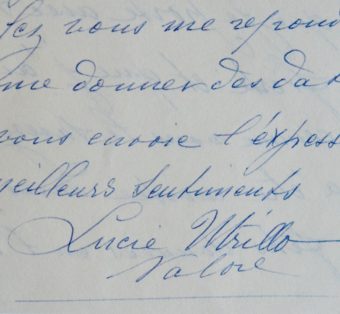 vous me répond
me donner des da
vous envoie l'express
meilleurs sentiments
Lucie Utrillo
Valore